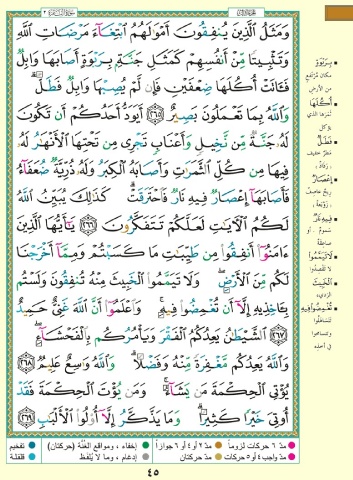 سورة البقرة ٢
وَمَثَلُ الَّذِينَ يُنفِقُونَ أَمْوَالَهُمُ ابْتِغَاءَ مَرْضَاتِ اللَّهِ
وَتَثْبِيتًا مِّنْ أَنفُسِهِمْ كَمَثَلِ جَنَّةٍ بِرَبْوَةٍ أَصَابَهَا وَابِلٌ
فَـَٔاتَتْ أُكُلَهَا ضِعْفَيْنِ فَإِن لَّمْ يُصِبْهَا وَابِلٌ فَطَلٌّ
وَاللَّهُ بِمَا تَعْمَلُونَ بَصِيرٌ ٢٦٥ أَيَوَدُّ أَحَدُكُمْ أَن تَكُونَ
لَهُ جَنَّةٌ مِّن نَّخِيلٍ وَأَعْنَابٍ تَجْرِي مِن تَحْتِهَا الْأَنْهَارُ لَهُ
فِيهَا مِن كُلِّ الثَّمَرَاتِ وَأَصَابَهُ الْكِبَرُ وَلَهُ ذُرِّيَّةٌ ضُعَفَاءُ
فَأَصَابَهَا إِعْصَارٌ فِيهِ نَارٌ فَاحْتَرَقَتْ كَذَٰلِكَ يُبَيِّنُ اللَّهُ
لَكُمُ الْآيَاتِ لَعَلَّكُمْ تَتَفَكَّرُونَ ٢٦٦ يَا أَيُّهَا الَّذِينَ
ءَامَنُوا أَنفِقُوا مِن طَيِّبَاتِ مَا كَسَبْتُمْ وَمِمَّا أَخْرَجْنَا
لَكُم مِّنَ الْأَرْضِ وَلَا تَيَمَّمُوا الْخَبِيثَ مِنْهُ تُنفِقُونَ وَلَسْتُم
بِـَٔاخِذِيهِ إِلَّا أَن تُغْمِضُوا فِيهِ وَاعْلَمُوا أَنَّ اللَّهَ غَنِيٌّ حَمِيدٌ
٢٦٧ الشَّيْطَانُ يَعِدُكُمُ الْفَقْرَ وَيَأْمُرُكُم بِالْفَحْشَاءِ
وَاللَّهُ يَعِدُكُم مَّغْفِرَةً مِّنْهُ وَفَضْلًا وَاللَّهُ وَاسِعٌ عَلِيمٌ ٢٦٨
يُؤْتِي الْحِكْمَةَ مَن يَشَاءُ وَمَن يُؤْتَ الْحِكْمَةَ فَقَدْ
أُوتِيَ خَيْرًا كَثِيرًا وَمَا يَذَّكَّرُ إِلَّا أُولُو الْأَلْبَابِ ٢٦٩
بِرَبْوَةٍ
مكان مرتفع
من الأرض
أُكُلَهَا
ثمرها الذي
يؤكل
فَطَلٌّ
مطر خفيف
إِعْصَارٌ
ريح عاصف
فِيهِ نَارٌ
لَا تَيَمَّمُوا
لا تقصدوا
الْخَبِيثَ
الرديء
تُغْمِضُوا فِيهِ
تتساهلوا
وتتسامحوا
في أخذه
مد ٦ حركات لزوماً مد ٢ أو ٤ أو ٦ جوازاً إخفاء، ومواقع الغنة (حركتان) تفخيم
مد واجب ٤ أو ٥ حركات مد حركتان إدغام، وما لا يلفظ قلقلة
٤٥